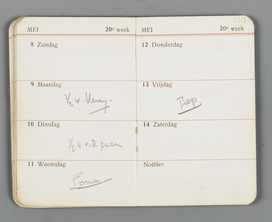 MEI 20e week
8 Zondag
9 Maandag
½ 4
10 Dinsdag
½ 4 v.d.
11 Woensdag
MEI 20e week
12 Donderdag
13 Vrijdag
Bep
14 Zaterdag
Notities